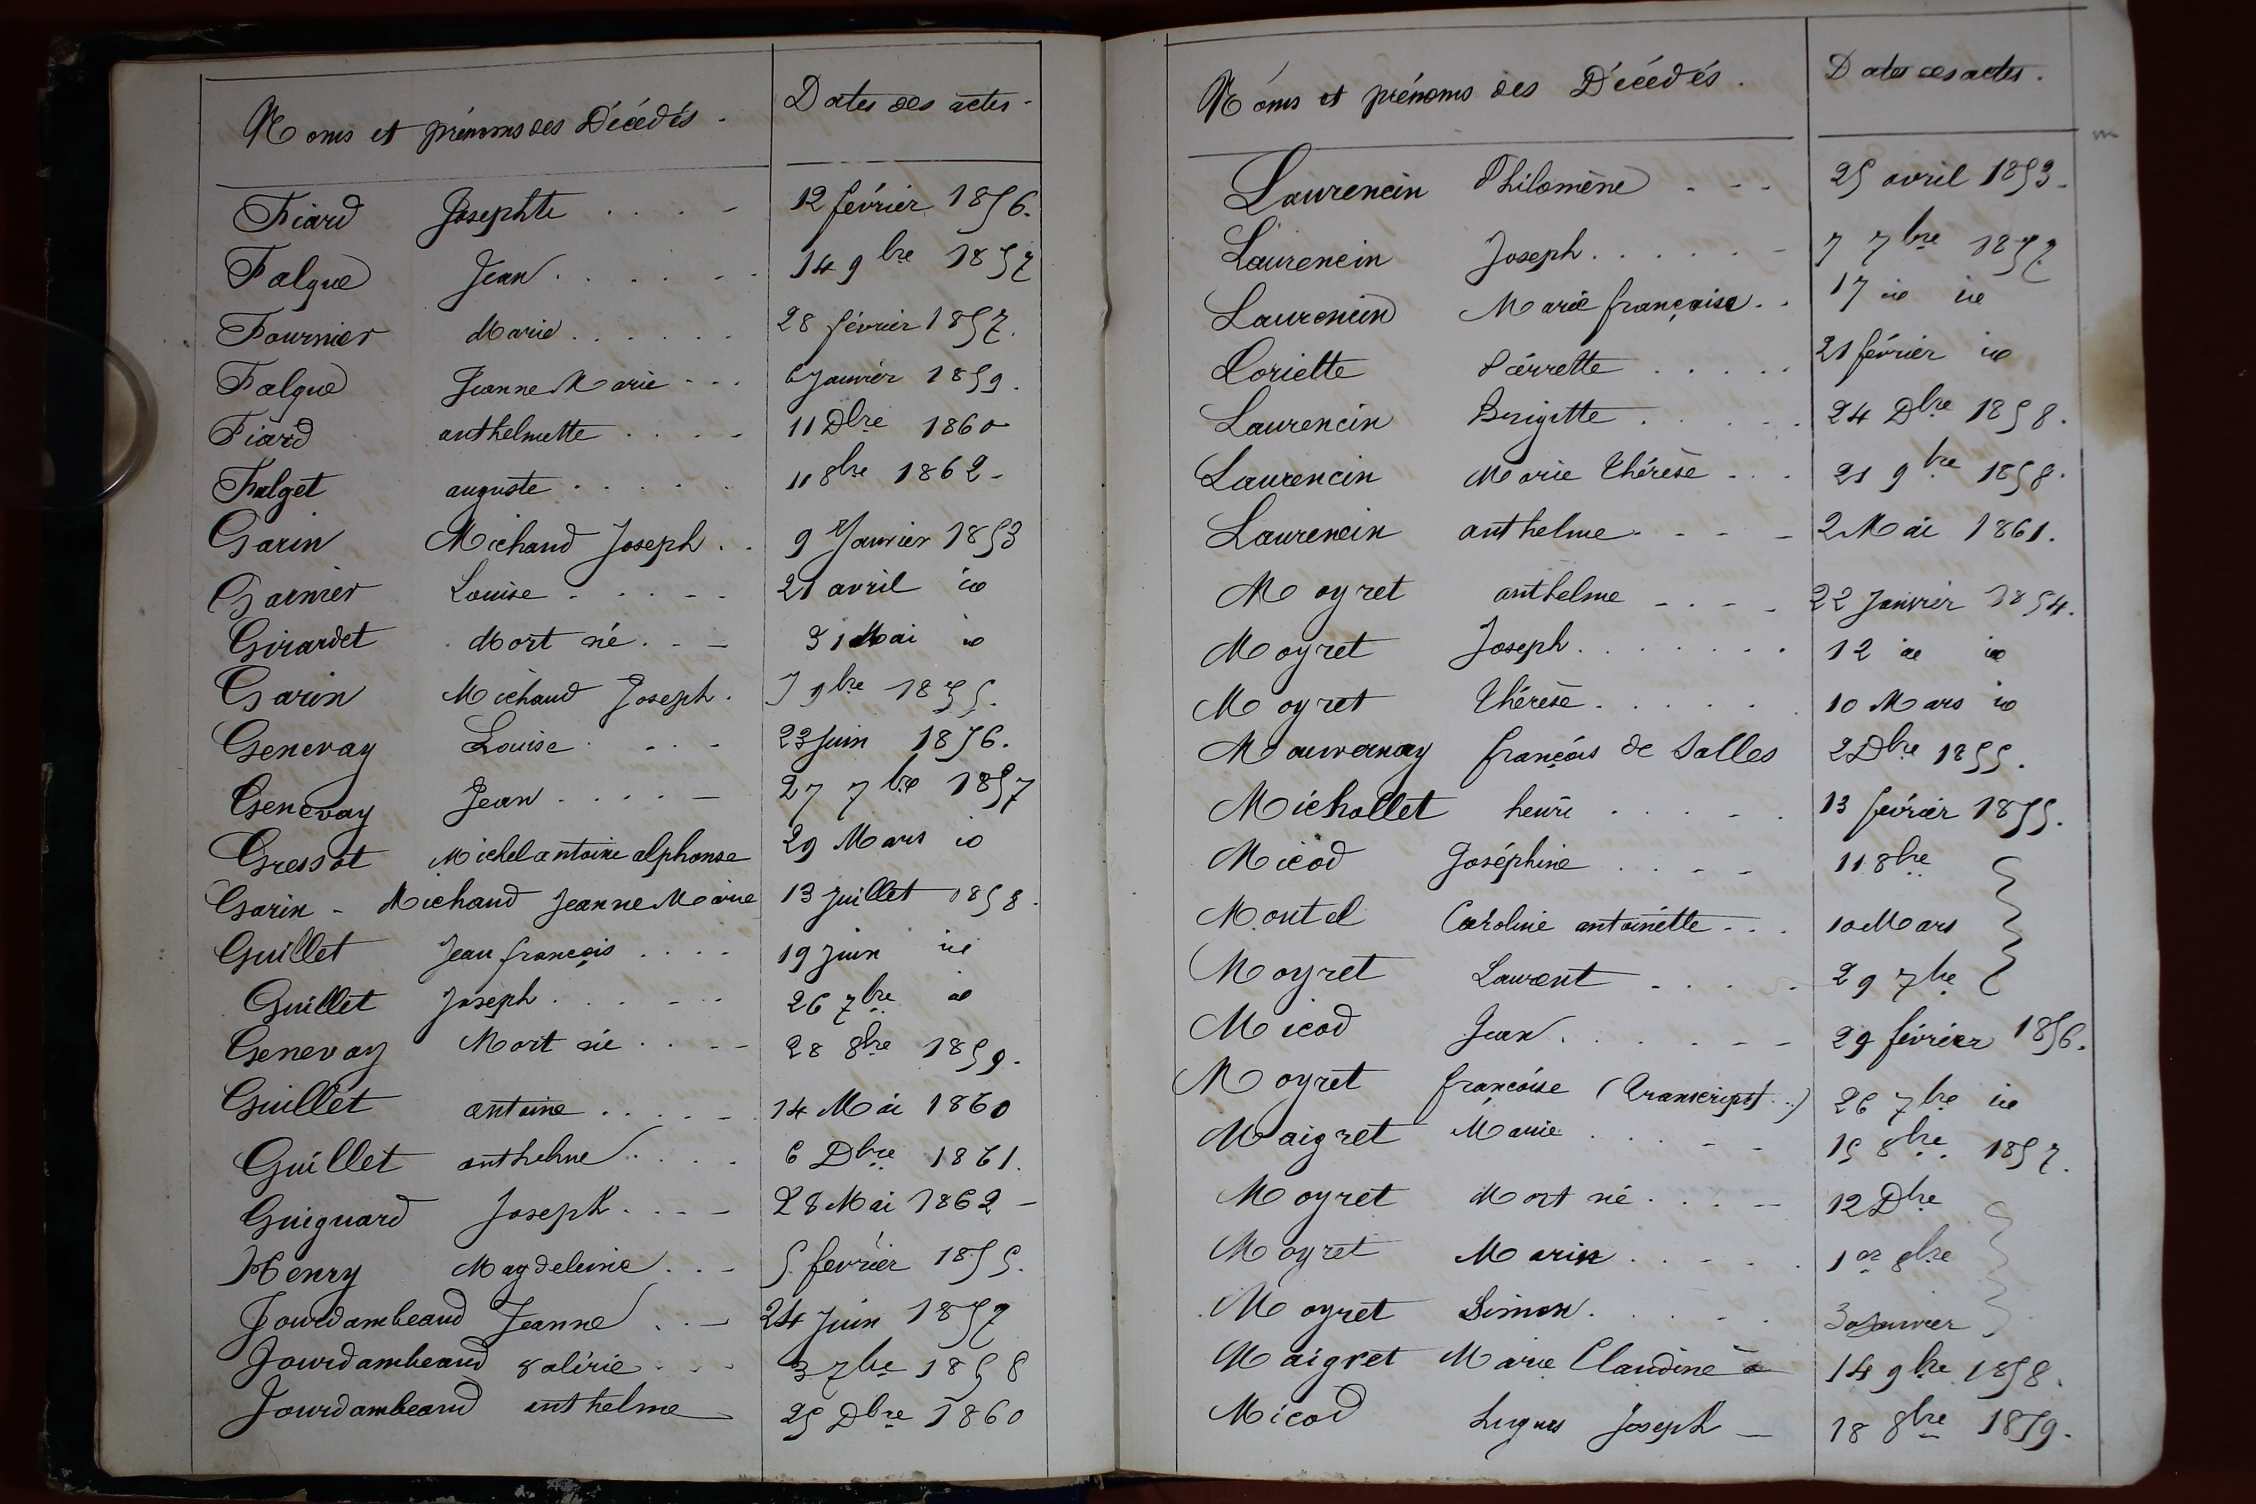 Noms et prénoms des Décédés. Dates des actes.
Fiard Josephte 12 février 1856.
Falque Jean 14 9bre 1857
Fournier Marie 28 février 1857.
Falque Jeanne Marie 6 Janvier 1859.
Fiard anthelmette 11 Dbre 1860
Falget auguste 11 8bre 1862
Garin Michaud Joseph 9 Janvier 1853
Garnier Louise 21 avril id
Girardet Mort né 31 Mai id
Garin Michaud Joseph. 7 9bre 1855.
Genevay Louise 23 Juin 1856.
Genevay Jean 27 7bre 1857
Gressot Michel antoine alphonse 29 Mars id
Garin - Michaud Jeanne Marie 13 Juillet 1858.
Guillet Jean françois 19 Juin id
Guillet Joseph 26 7bre id
Genevay Mort né 28 8bre 1859.
Guillet antoine 14 Mai 1860
Guillet anthelme 6 Dbre 1861.
Guiguard Joseph 28 Mai 1862
Henry Magdeleine 5 février 1855.
Jourdambeaud Jeanne 24 Juin 1857
Jourdambeaud valérie 3 7bre 1858
Jourdambeaud anthelme 25 Dbre 1860
Noms et prénoms des Décédés. Dates des actes.
Laurencin Philomène 25 avril 1853.
Laurencin Joseph 7 7bre 1857
Laurencin Marie françoise 17 id id
Loriette Pierrette 21 février id
Laurencin Brigitte 24 Dbre 1858.
Laurencin Marie Thérèse 21 9bre 1858.
Laurencin anthelme 2 Mai 1861.
Moyret anthelme 22 Janvier 1854.
Moyret Joseph 12 id id
Moyret Thérèse 10 Mars id
Mauvernay françois de Salles 2 Dbre 1855.
Michollet henri 13 février 1855.
Micod Joséphine 11 8bre
Montel Caroline antoinette 10 Mars
Moyret Laurent 29 7bre
Micod Jean 29 février 1856.
Moyret françoise (transcript..) 26 7bre id
Maigret Marie 15 8bre 1857.
Moyret Mort né 12 Dbre
Moyret Marin 1er 8bre
Moyret Simon 30 Janvier
Maigret Marie Claudine 14 9bre 1858.
Micod hugues Joseph 18 8bre 1859.